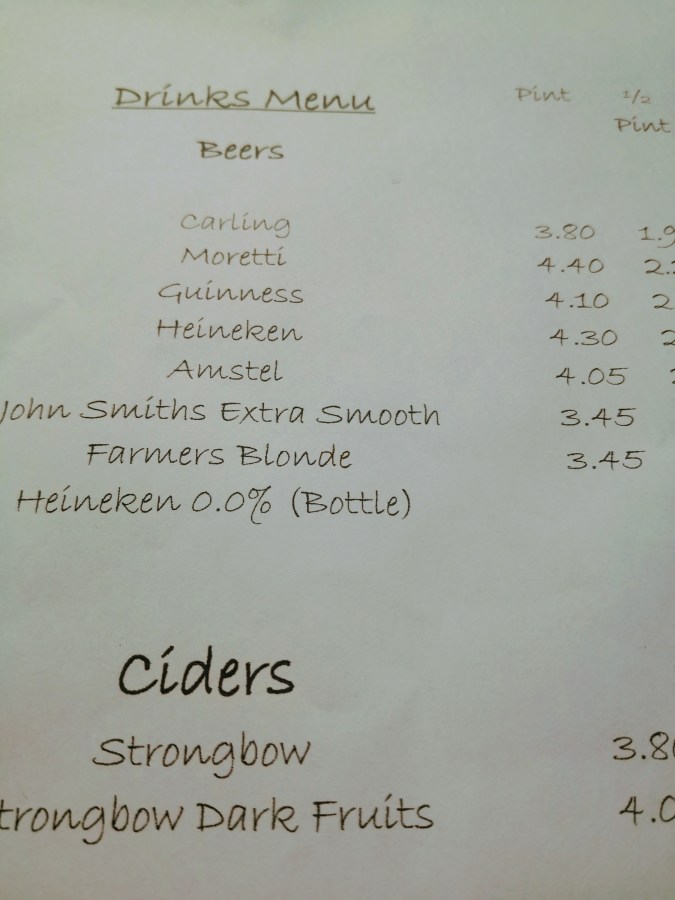 Drinks Menu Pint 1/2
Pint
Beers
Carling 3.80 1.9
Moretti 4.40 2.
Guinness 4.10 2
Heineken 4.30 2
Amstel 4.05
John Smiths Extra Smooth 3.45
Farmers Blonde 3.45
Heineken 0.0% (Bottle)
Ciders
Strongbow 3.8
trongbow Dark Fruits 4.0